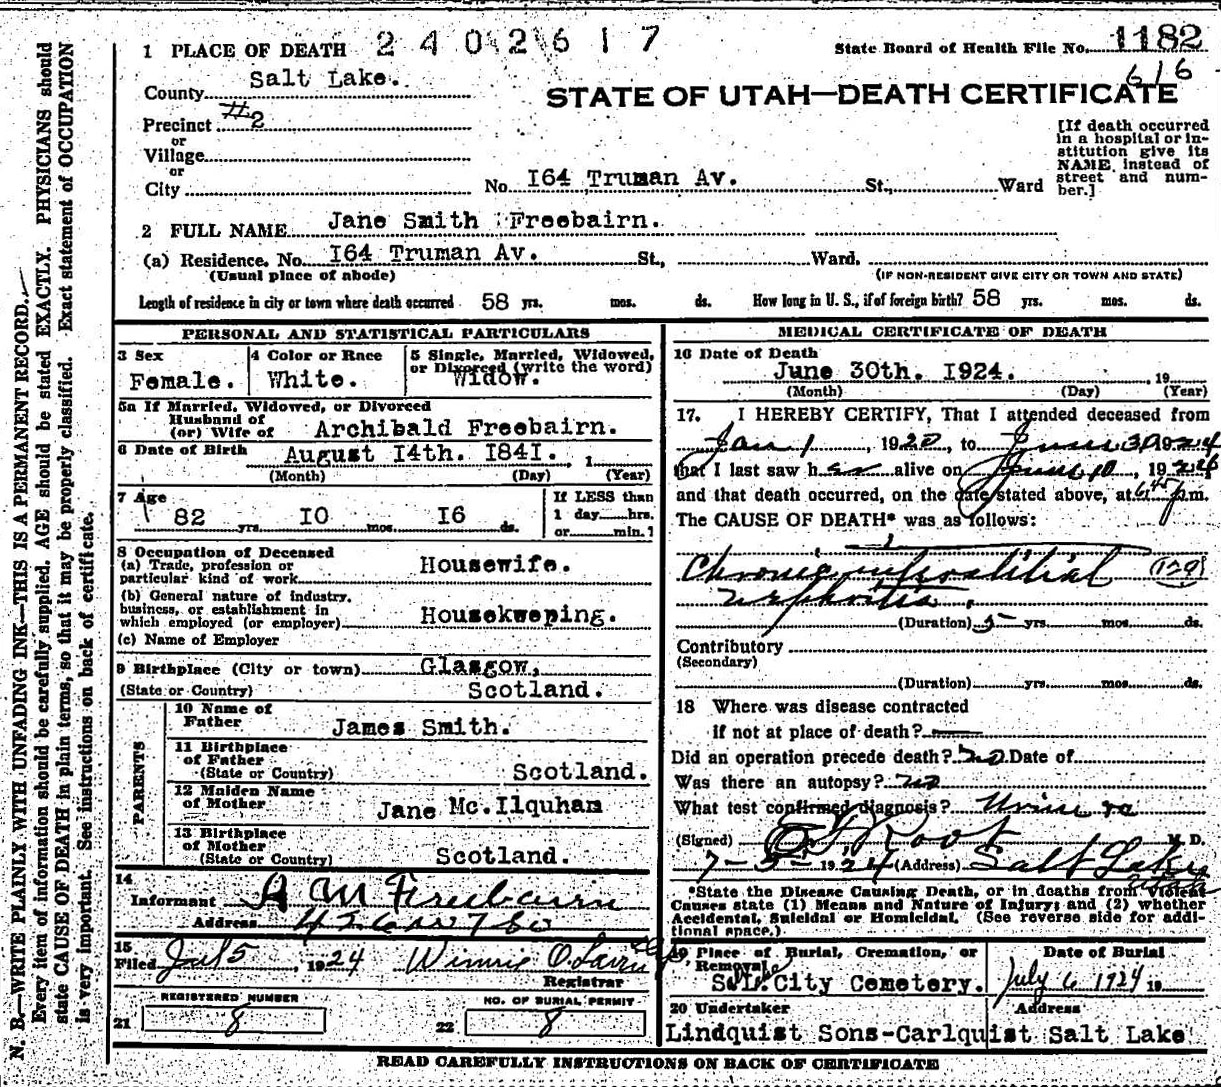 N. B.—WRITE PLAINLY WITH UNFADING INK—THIS IS A PERMANENT RECORD.
Every item of information should be carefully supplied. AGE should be stated EXACTLY. PHYSICIANS should
state CAUSE OF DEATH in plain terms, so that it may be properly classified. Exact statement of OCCUPATION
is very important. See instructions on back of certificate.
1 PLACE OF DEATH 2402617 State Board of Health File No. 1182
616
County Salt Lake.
STATE OF UTAH—DEATH CERTIFICATE
Precinct #2
or
Village
or
City No 164 Truman Av. St., Ward
[If death occurred
in a hospital or in-
stitution give its
NAME instead of
street and num-
ber.]
2 FULL NAME Jane Smith Freebairn.
(a) Residence. No. 164 Truman Av. St., Ward.
(Usual place of abode) (IF NON-RESIDENT GIVE CITY OR TOWN AND STATE)
Length of residence in city or town where death occurred 58 yrs. mos. ds. How long in U. S., if of foreign birth? 58 yrs. mos. ds.
PERSONAL AND STATISTICAL PARTICULARS
3 Sex
Female.
4 Color or Race
White.
5 Single, Married, Widowed,
or Divorced (write the word)
Widow.
5a If Married, Widowed, or Divorced
Husband of
(or) Wife of Archibald Freebairn.
6 Date of Birth August 14th. 1841. , 1
(Month) (Day) (Year)
7 Age
82 yrs. 10 mos. 16 ds.
If LESS than
1 day hrs.
or min.?
8 Occupation of Deceased
(a) Trade, profession or
particular kind of work Housewife.
(b) General nature of industry,
business, or establishment in
which employed (or employer) Housekweping.
(c) Name of Employer
9 Birthplace (City or town) Glasgow,
(State or Country) Scotland.
PARENTS
10 Name of
Father James Smith.
11 Birthplace
of Father
(State or Country) Scotland.
12 Maiden Name
of Mother Jane Mc.Ilquham
13 Birthplace
of Mother
(State or Country) Scotland.
14
Informant A M Freebairn
Address
15
Filed Jul 5, 1924 Winnie O.
Registrar
REGISTERED NUMBER
21 8
NO. OF BURIAL PERMIT
22 8
MEDICAL CERTIFICATE OF DEATH
16 Date of Death
June 30th. 1924. , 19
(Month) (Day) (Year)
17. I HEREBY CERTIFY, That I attended deceased from
Jan 1 1920, to June 30 1924
that I last saw her alive on June 10, 1924
and that death occurred, on the date stated above, at 6 45 p.m.
The CAUSE OF DEATH* was as follows:
Chronic interstitial (129)
nephritis.
(Duration) 5 yrs. mos. ds.
Contributory
(Secondary)
(Duration) yrs. mos. ds.
18 Where was disease contracted
if not at place of death?
Did an operation precede death? no Date of
Was there an autopsy? no
What test confirmed diagnosis? Urine
(Signed) Root M. D.
7-5- 1924 (Address) Salt Lake
*State the Disease Causing Death, or in deaths from Violent
Causes state (1) Means and Nature of Injury; and (2) whether
Accidental, Suicidal or Homicidal. (See reverse side for addi-
tional space.)
19 Place of Burial, Cremation, or
Removal
S.L. City Cemetery.
Date of Burial
July 6 1924 19
20 Undertaker Address
Lindquist Sons-Carlquist Salt Lake
READ CAREFULLY INSTRUCTIONS ON BACK OF CERTIFICATE